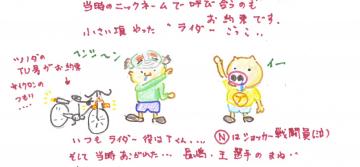 当時のニックネームで呼び合うのも
お約束です。
小さい頃やった"ライダー"ごっこ..
ツノダの
TU号がお約束
サイクロンの
つもり....
ジャーン
イー
いつもライダー役はTくん... Ⓝはショッカー戦闘員(泣)
そして当時あこがれた... 長嶋、王選手のまね..